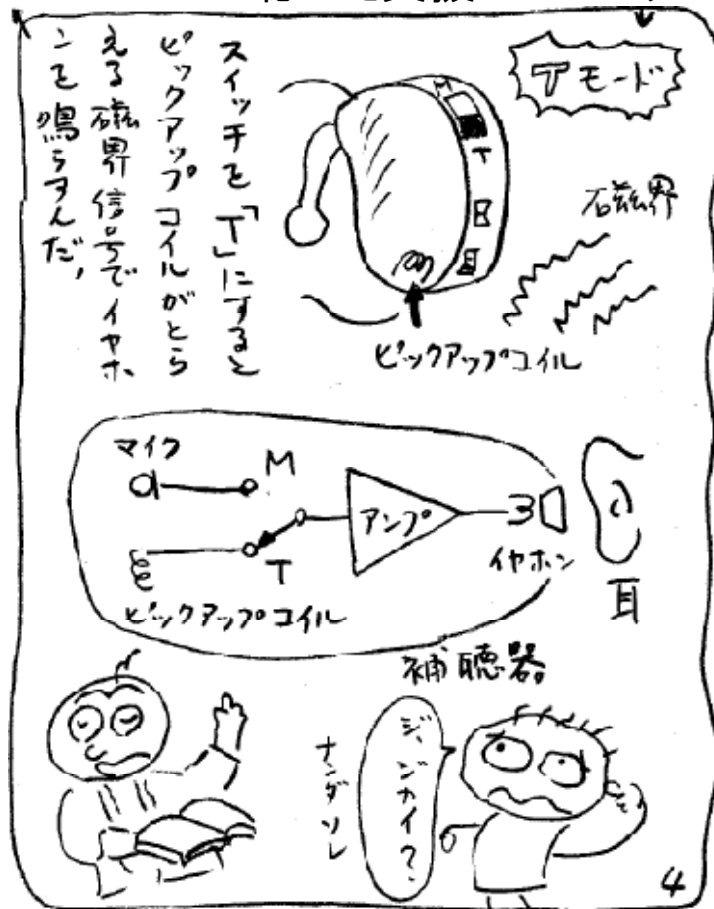 Tモード
スイッチを「T」にすると
ピックアップコイルがとら
える磁界信号でイヤホ
ンを鳴らすんだ,
M
T
磁界
ピックアップコイル
マイク
M
アンプ
イヤホン
耳
T
ピックアップコイル
補聴器
ジ、ジカイ?
ナンダソレ
4